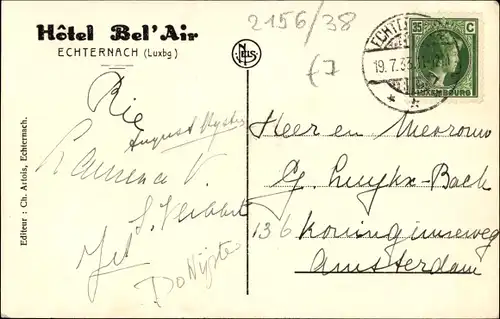 Hôtel Bel' Air
ECHTERNACH (Luxbg)
2156/38
NELS
ECHTER
19.7.33
35 C
LUXEMBOURG
£7
Rie
August
Editeur : Ch. Artois, Echternach.
Heer en Mevrouw
G. Luykx-Bach
136 Koninginneweg
Amsterdam
Jet
Do Nijster